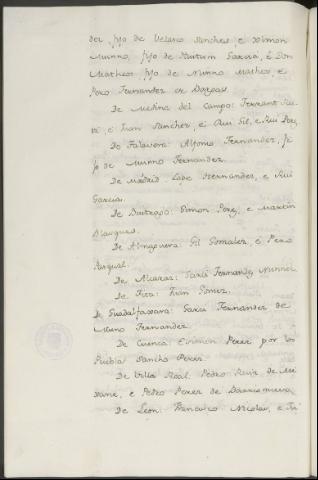 der, fijo de Velasco Sanches, e Ximon
Munno, fijo de Furtum Garcia, e Don
Matheos, fijo de Munno Matheo, e
Pero Fernandez de
De Medina del Campo: Ferrant
e Iuan Sanchez, e Rui Gil, e Rui
De Talavera: Alfonso Fernandez, fi
jo de Munno Fernandez.
De Madrid Lope Fernandez, e Rui
Garcia.
De Buitrago: Simon Perez, e Martin
Blasquez.
De Almoguera: Gil Gomalez, e Pero
Pasqual.
De Alcaraz: Garci Fernandez,
De Fita: Iuan Gomez.
De Guadalfaxara: Garci Fernandez de
Muno Fernandez.
De Cuenca: Perez por los
Puebla Sancho Perez.
De Villa Real: Pedro Ruiz, de
e Pedro Perez de Barrionuevo.
De Leon: Francisco Nicolas, e